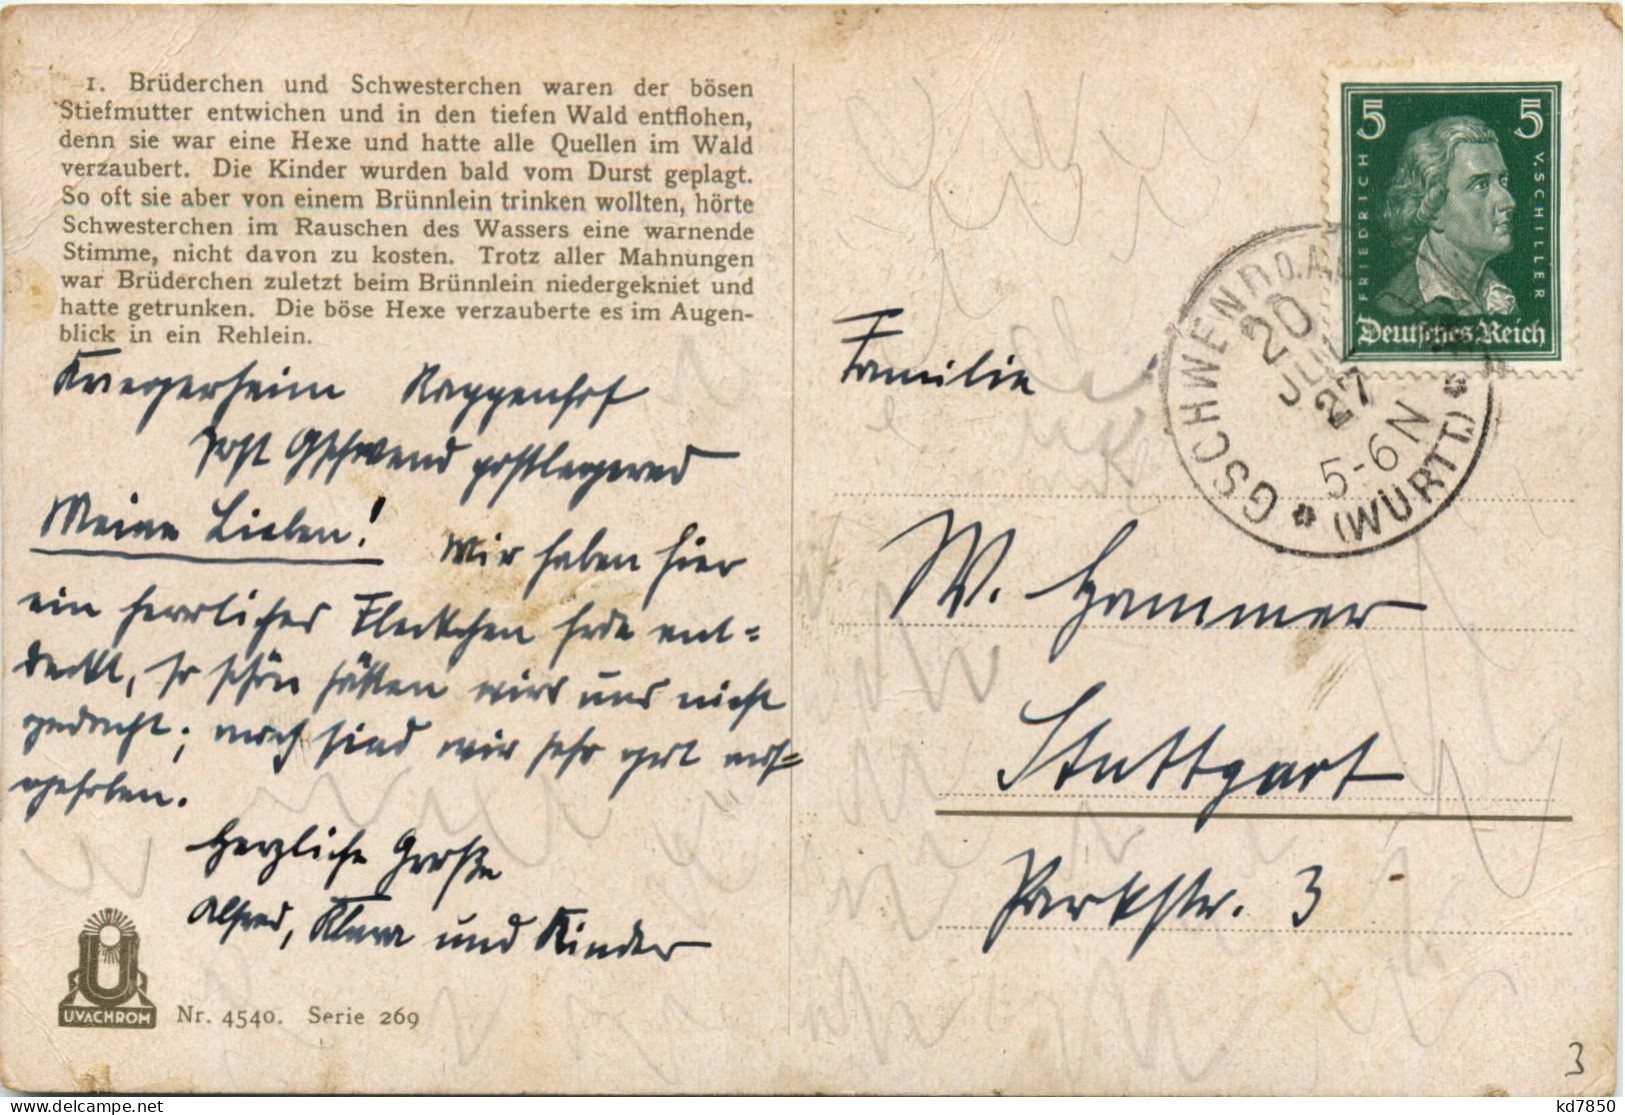 1. Brüderchen und Schwesterchen waren der bösen
Stiefmutter entwichen und in den tiefen Wald entflohen,
denn sie war eine Hexe und hatte alle Quellen im Wald
verzaubert. Die Kinder wurden bald vom Durst geplagt.
So oft sie aber von einem Brünnlein trinken wollten, hörte
Schwesterchen im Rauschen des Wassers eine warnende
Stimme, nicht davon zu kosten. Trotz aller Mahnungen
war Brüderchen zuletzt beim Brünnlein niedergekniet und
hatte getrunken. Die böse Hexe verzauberte es im Augen-
blick in ein Rehlein.
Kriegerheim Rappenhof
Post Gschwend postlagernd
Meine Lieben!
Wir haben hier
ein herrliches Fleckchen Erde ent=
deckt, so schön hätten wirs uns nicht
gedacht; auch sind wir sehr gut auf=
gehoben.
Herzliche Grüße
Alfred, Klara und Kinder
UVACHROM
Nr. 4540. Serie 269
5 5
FRIEDRICH V. SCHILLER
Deutsches Reich
GSCHWEND O.A.
20 JUN 27
5-6 N
(WÜRTT.)
Familie
W. Hammer
Stuttgart
Parkstr. 3
3
kd7850